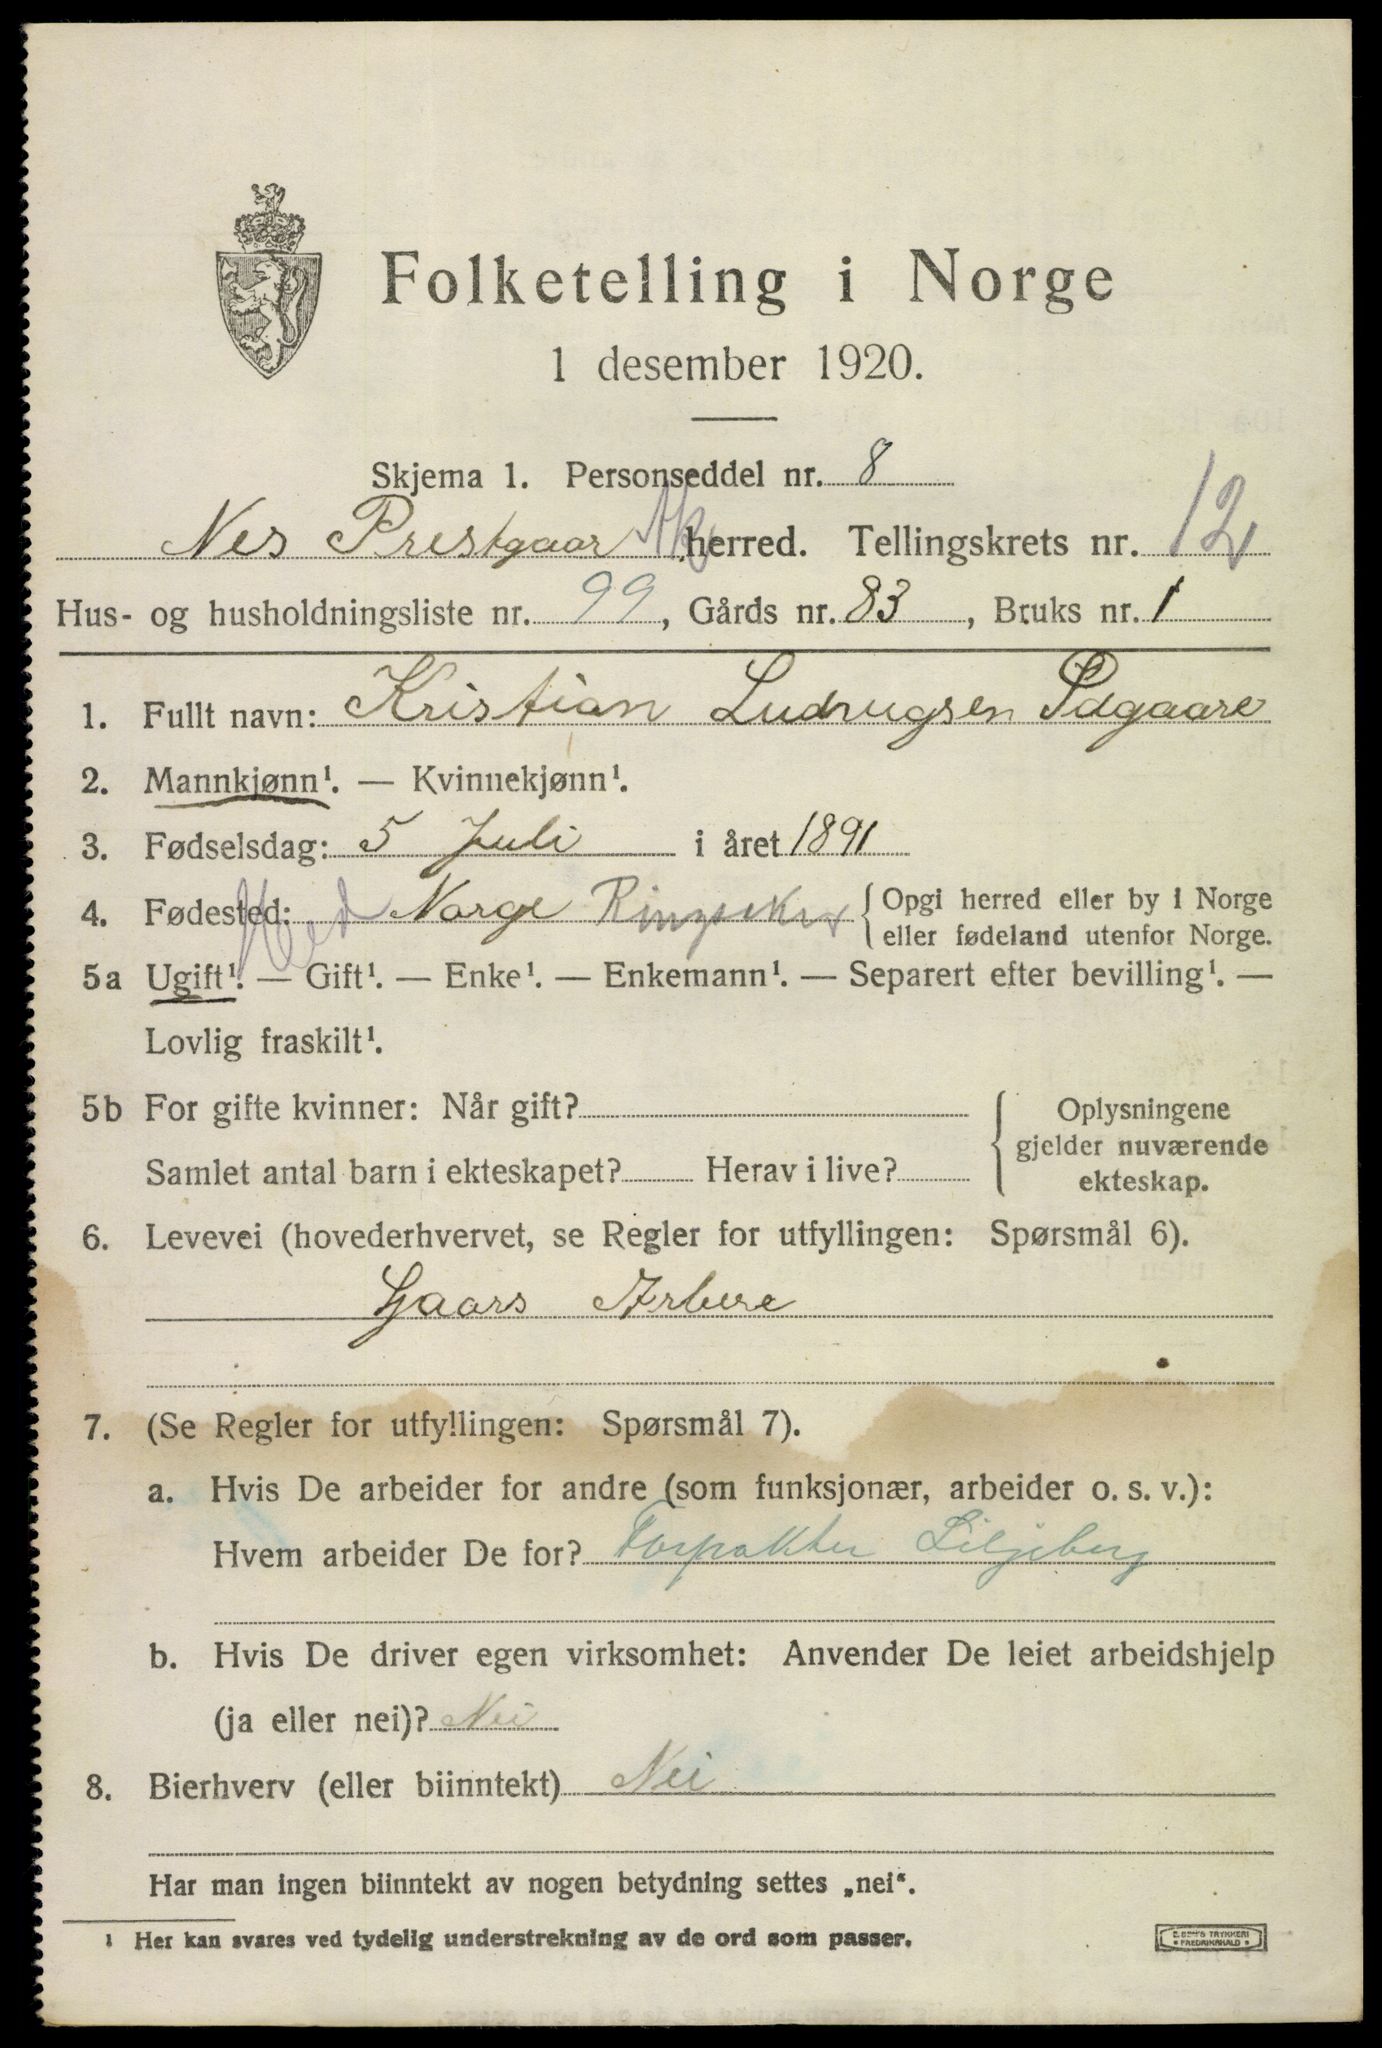 Folketelling i Norge
1 desember 1920.
Skjema 1. Personseddel nr. 8
Nes Prestgaar Ak. herred. Tellingskrets nr. 12
Hus- og husholdningsliste nr. 99, Gårds nr. 83, Bruks nr. 1
1. Fullt navn: Kristian Ludvigsen
2. Mannkjønn¹. — Kvinnekjønn¹.
3. Fødselsdag: 5 Juli i året 1891
4. Fødested: Hed Norge Ringseker { Opgi herred eller by i Norge
eller fødeland utenfor Norge.
5a Ugift¹. — Gift¹. — Enke¹. — Enkemann¹. — Separert efter bevilling¹. —
Lovlig fraskilt¹.
5b For gifte kvinner: Når gift? { Oplysningene
gjelder nuværende
Samlet antal barn i ekteskapet? Herav i live? ekteskap.
6. Levevei (hovederhvervet, se Regler for utfyllingen: Spørsmål 6).
Gaars Arbere
7. (Se Regler for utfyllingen: Spørsmål 7).
a. Hvis De arbeider for andre (som funksjonær, arbeider o. s. v.):
Hvem arbeider De for? Forpakter Liljeberg
b. Hvis De driver egen virksomhet: Anvender De leiet arbeidshjelp
(ja eller nei)? Nei
8. Bierhverv (eller biinntekt) Nei
Har man ingen biinntekt av nogen betydning settes „nei“.
¹ Her kan svares ved tydelig understrekning av de ord som passer.
TRYKKERI
FREDRIKSHALD